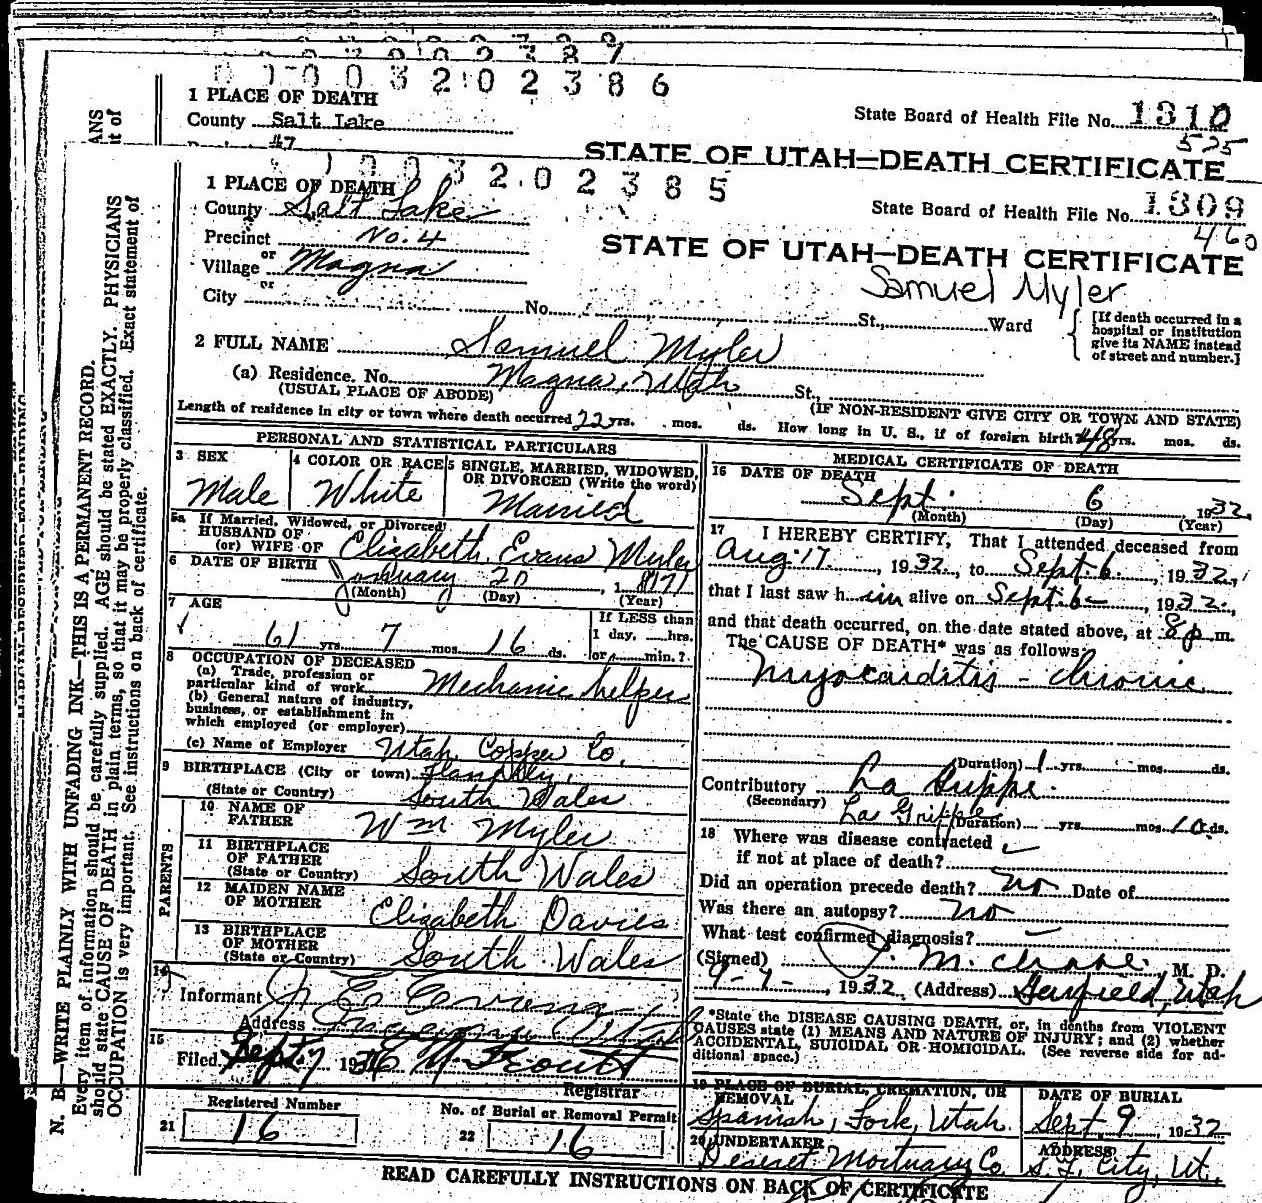 0 0 0 3 2 0 2 3 8 6
1 PLACE OF DEATH
County Salt Lake
State Board of Health File No. 1310
#47
525
STATE OF UTAH—DEATH CERTIFICATE
1 0 0 3 2 0 2 3 8 5
1 PLACE OF DEATH
County Salt Lake
State Board of Health File No. 1309
460
Precinct No. 4
STATE OF UTAH—DEATH CERTIFICATE
or
Village Magna
Samuel Myler
or
City No. St., Ward
[If death occurred in a
hospital or institution
give its NAME instead
of street and number.]
2 FULL NAME Samuel Myler
(a) Residence. No. Magna, Utah St.,
(USUAL PLACE OF ABODE) (IF NON-RESIDENT GIVE CITY OR TOWN AND STATE)
Length of residence in city or town where death occurred 22 yrs. mos. ds. How long in U. S., if of foreign birth? 48 yrs. mos. ds.
PERSONAL AND STATISTICAL PARTICULARS
3 SEX
Male
4 COLOR OR RACE
White
5 SINGLE, MARRIED, WIDOWED,
OR DIVORCED (Write the word)
Married
5a If Married, Widowed, or Divorced
HUSBAND OF
(or) WIFE OF Elizabeth Evans Myler
6 DATE OF BIRTH January 20, 1871
(Month) (Day) (Year)
7 AGE
61 yrs. 7 mos. 16 ds.
If LESS than
1 day, hrs.
or min.?
8 OCCUPATION OF DECEASED
(a) Trade, profession or
particular kind of work Mechanic helper
(b) General nature of industry,
business, or establishment in
which employed (or employer)
(c) Name of Employer Utah Copper Co.
9 BIRTHPLACE (City or town)
(State or Country) South Wales
PARENTS
10 NAME OF
FATHER Wm Myler
11 BIRTHPLACE
OF FATHER
(State or Country) South Wales
12 MAIDEN NAME
OF MOTHER Elizabeth Davies
13 BIRTHPLACE
OF MOTHER
(State or Country) South Wales
14
Informant
Address
15
Filed Sept 7 193
Registrar
Registered Number
21 16
No. of Burial or Removal Permit
22 16
MEDICAL CERTIFICATE OF DEATH
16 DATE OF DEATH
Sept. 6, 1932
(Month) (Day) (Year)
17 I HEREBY CERTIFY, That I attended deceased from
Aug. 17, 1932, to Sept. 6, 1932,
that I last saw him alive on Sept. 6, 1932,
and that death occurred, on the date stated above, at 8 p m.
The CAUSE OF DEATH* was as follows:
Myocarditis - Chronic
(Duration) 1 yrs. mos. ds.
Contributory La Grippe.
(Secondary) La Grippe
(Duration) yrs. mos. 10 ds.
18 Where was disease contracted
if not at place of death?
Did an operation precede death? no Date of
Was there an autopsy? no
What test confirmed diagnosis?
(Signed) M. M. D.
9-7-, 1932 (Address) Garfield, Utah
*State the DISEASE CAUSING DEATH, or, in deaths from VIOLENT
CAUSES state (1) MEANS AND NATURE OF INJURY; and (2) whether
ACCIDENTAL, SUICIDAL OR HOMICIDAL. (See reverse side for ad-
ditional space.)
19 PLACE OF BURIAL, CREMATION, OR
REMOVAL
Spanish Fork, Utah.
DATE OF BURIAL
Sept 9, 1932
20 UNDERTAKER
Deseret Mortuary Co
ADDRESS
S. L. City, Ut.
READ CAREFULLY INSTRUCTIONS ON BACK OF CERTIFICATE
N. B.—WRITE PLAINLY WITH UNFADING INK—THIS IS A PERMANENT RECORD.
Every item of information should be carefully supplied. AGE should be stated EXACTLY. PHYSICIANS
should state CAUSE OF DEATH in plain terms, so that it may be properly classified. Exact statement of
OCCUPATION is very important. See instructions on back of certificate.